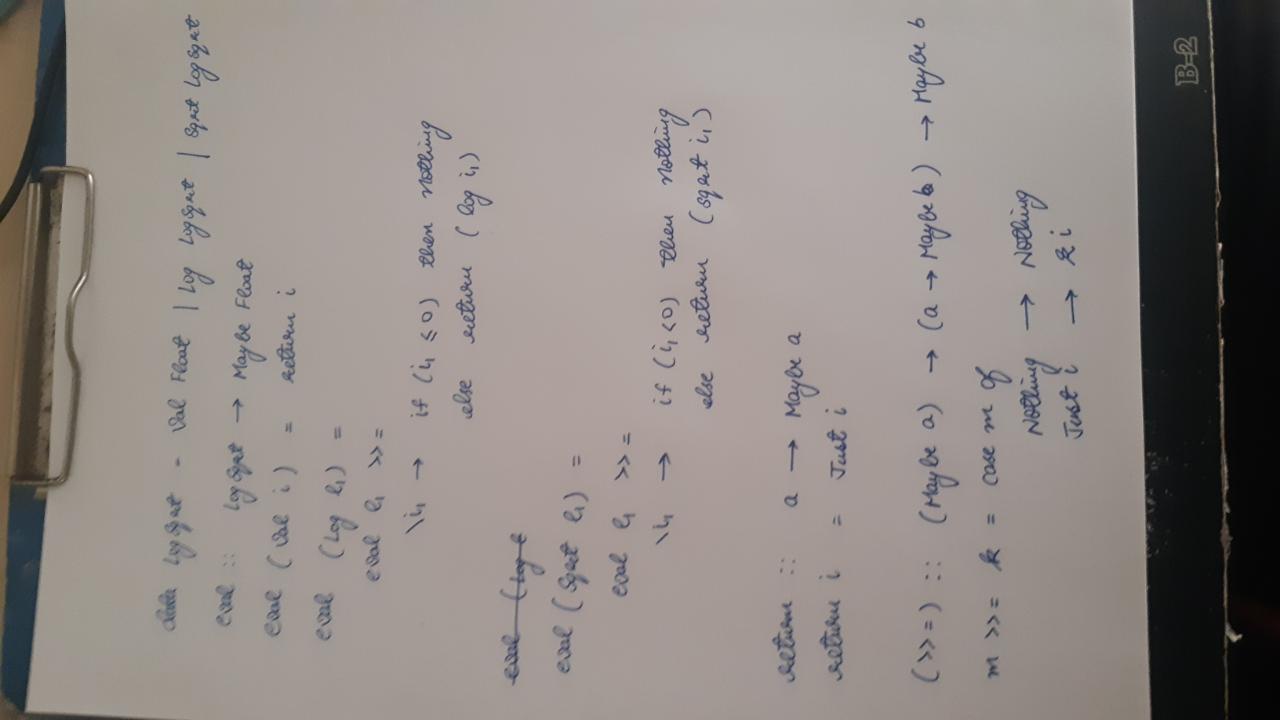 data LogSqrt = Val Float | Log LogSqrt | Sqrt LogSqrt
eval :: LogSqrt → Maybe Float
eval (Val i) = return i
eval (Log e₁) =
eval e₁ >>=
\i₁ → if (i₁ ≤ 0) then Nothing
else return (log i₁)
eval (Log e
eval (Sqrt e₁) =
eval e₁ >>=
\i₁ → if (i₁ < 0) then Nothing
else return (sqrt i₁)
return :: a → Maybe a
return i = Just i
(>>=) :: (Maybe a) → (a → Maybe b) → Maybe b
m >>= k = case m of
Nothing → Nothing
Just i → k i
B-2